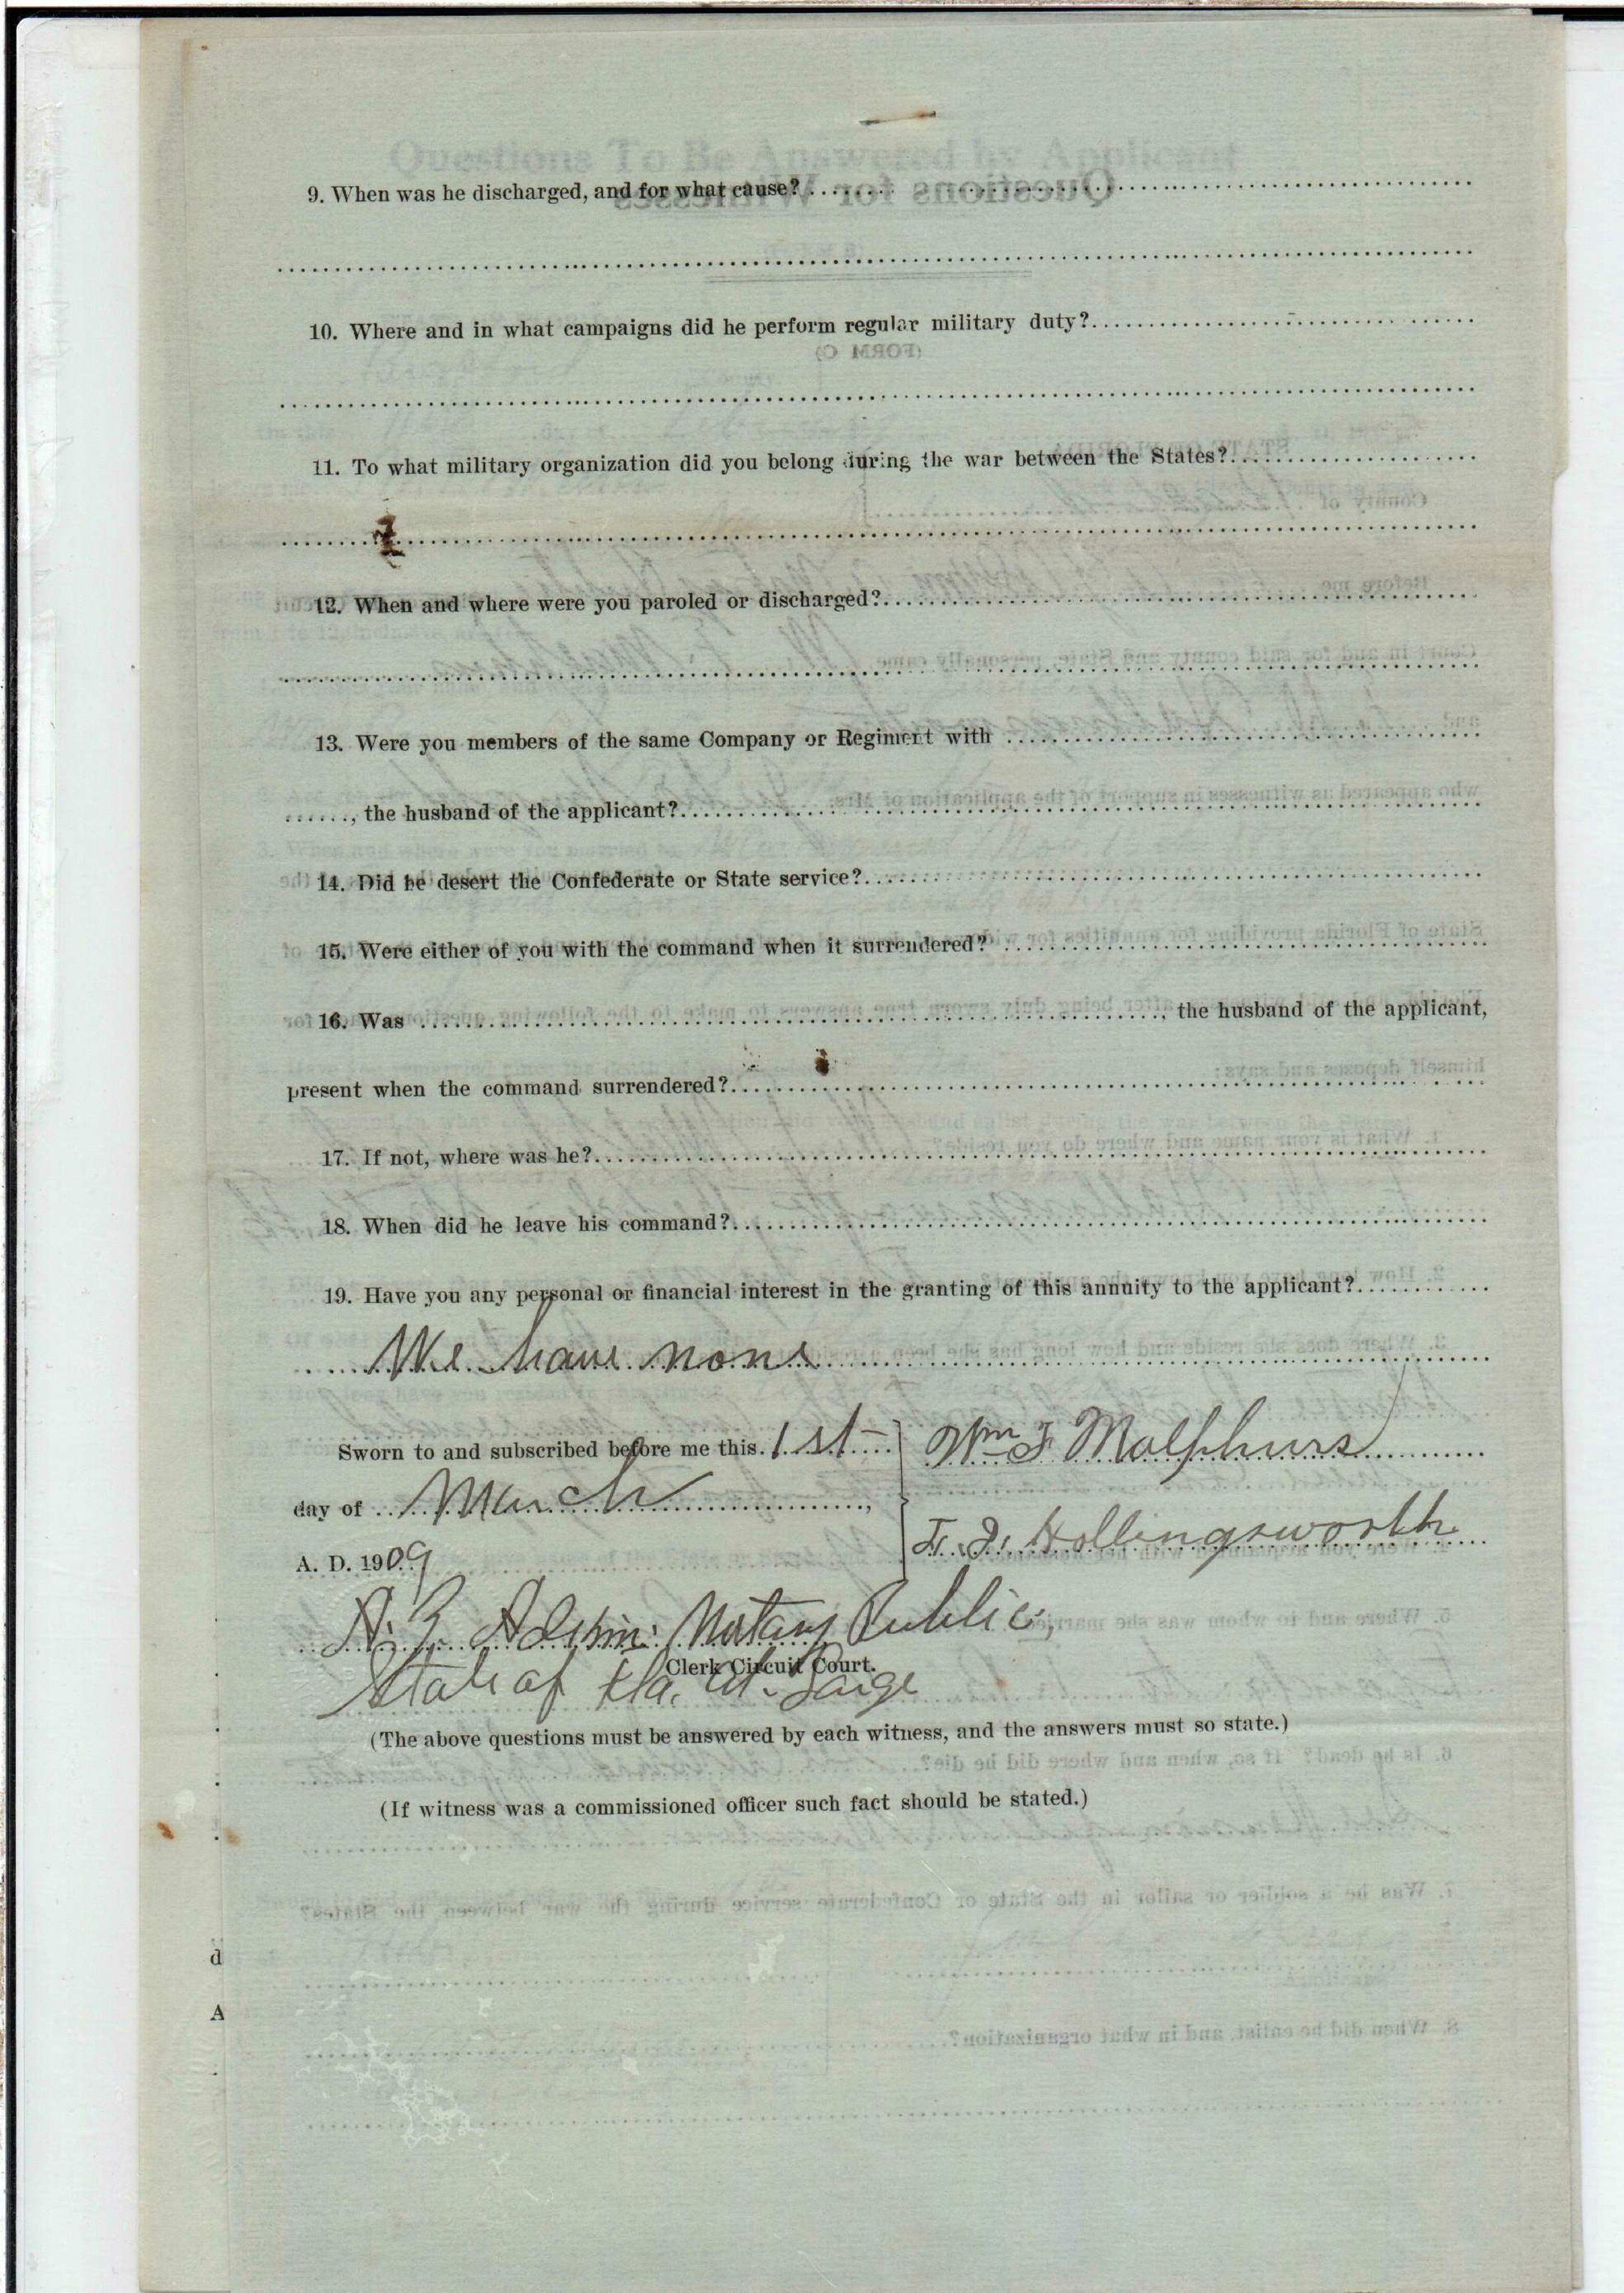 9. When was he discharged, and for what cause?
10. Where and in what campaigns did he perform regular military duty?
11. To what military organization did you belong during the war between the States?
12. When and where were you paroled or discharged?
13. Were you members of the same Company or Regiment with
, the husband of the applicant?
14. Did he desert the Confederate or State service?
15. Were either of you with the command when it surrendered?
16. Was , the husband of the applicant,
present when the command surrendered?
17. If not, where was he?
18. When did he leave his command?
19. Have you any personal or financial interest in the granting of this annuity to the applicant?
We have none
Sworn to and subscribed before me this 1st Wm F Malphurs
day of March,
A. D. 1909 Hollingsworth
Notary Public,
Clerk Circuit Court.
State of Fla. at Large
(The above questions must be answered by each witness, and the answers must so state.)
(If witness was a commissioned officer such fact should be stated.)
d
A